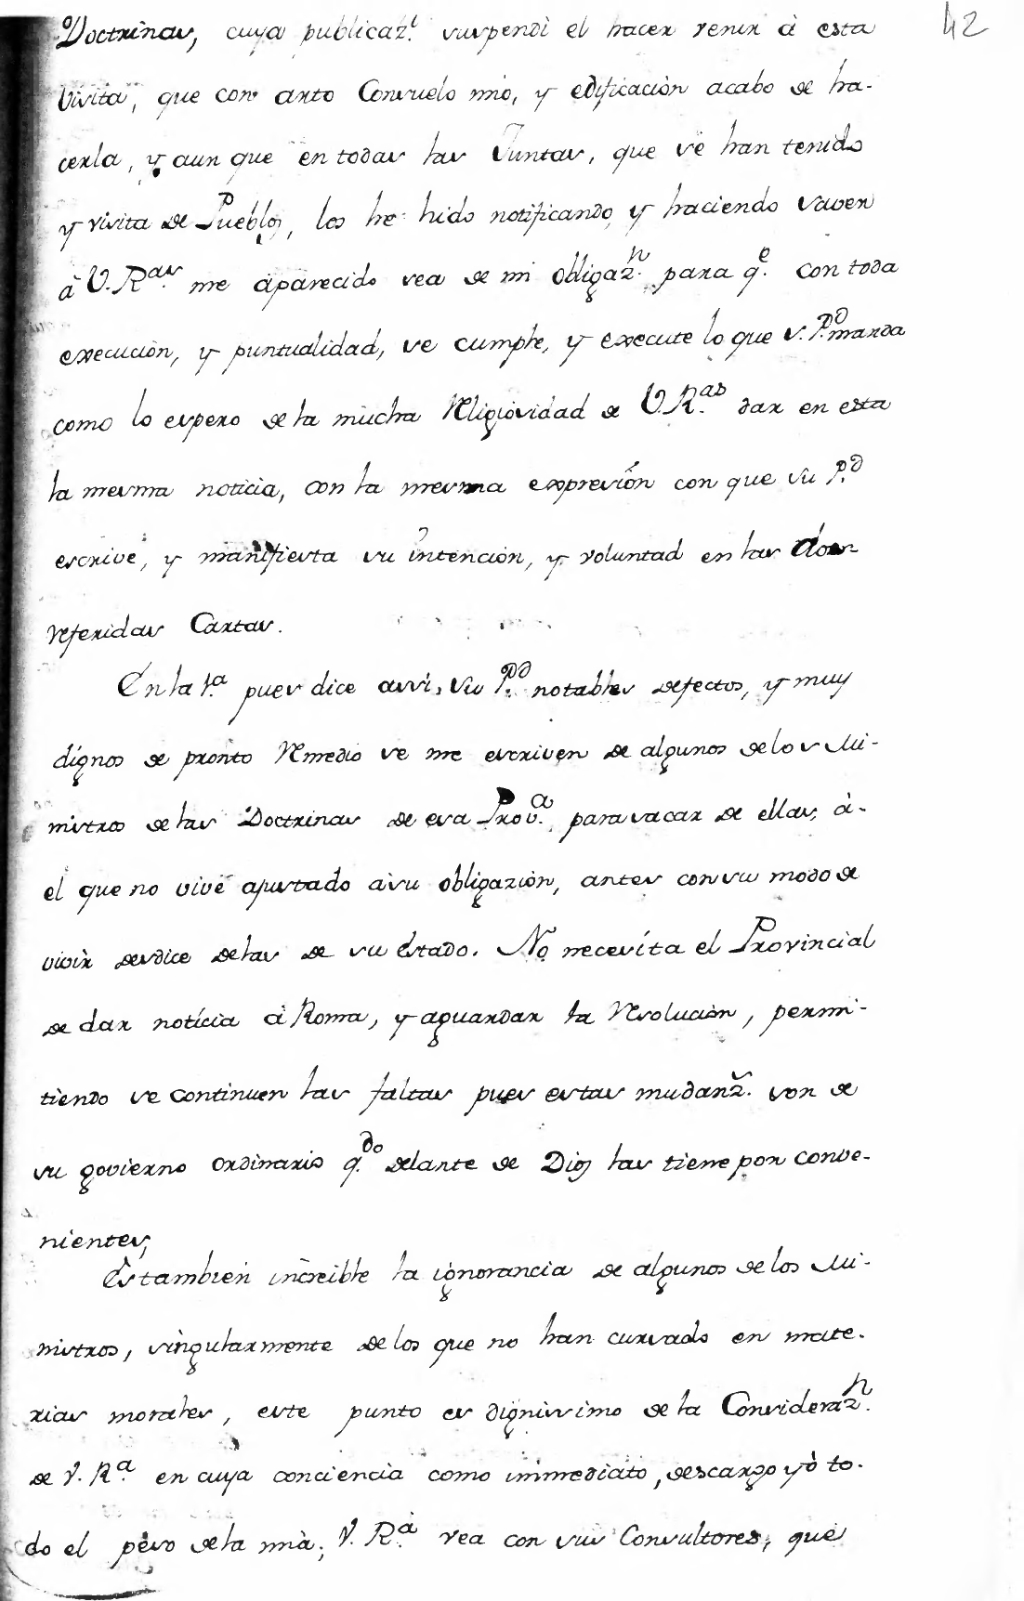 42
Doctrinas, cuya publicaz.ⁿ suspendi el hacer venir à esta
Visita, que con arto Consuelo mio, y edificación acabo de ha-
cerla, y aun que en todas las Juntas, que se han tenido
y visita de Pueblos, les he hido notificando, y haciendo saver
à V. R.as me aparecido sea de mi obligaz.n para q.e con toda
execución, y puntualidad, se cumple, y execute lo que S. P.d manda
como lo espero de la mucha Religiosidad de V R.as dar en esta
la mesma noticia, con la mesma expresión con que Su P.d
escrive, y manifiesta su intención, y voluntad en las dos
referidas Cartas.
En la 1.a pues dice assi, Su P.d notables defectos, y muy
dignos de pronto Remedio se me escriven de algunos de los Mi-
nistros de las Doctrinas de esa Prov.a para sacar de ellas, à-
el que no vive ajustado asu obligazión, antes con su modo de
vivir desdice de las de su Estado. No necesita el Provincial
de dar noticia à Roma, y aguardar la Resolución, permi-
tiendo se continuen las faltas pues estas mudanz.s son de
su govierno ordinario q.do delante de Dios las tiene por conve-
nientes;
Es tambien increible la ignorancia de algunos de los Mi-
nistros, singularmente de los que no han cursado en mate-
rias morales, este punto es dignissimo de la Consideraz.n
de V. R.a en cuya conciencia como immediato, descargo yò to-
do el peso de la mia; V. R.a vea con sus Consultores, que